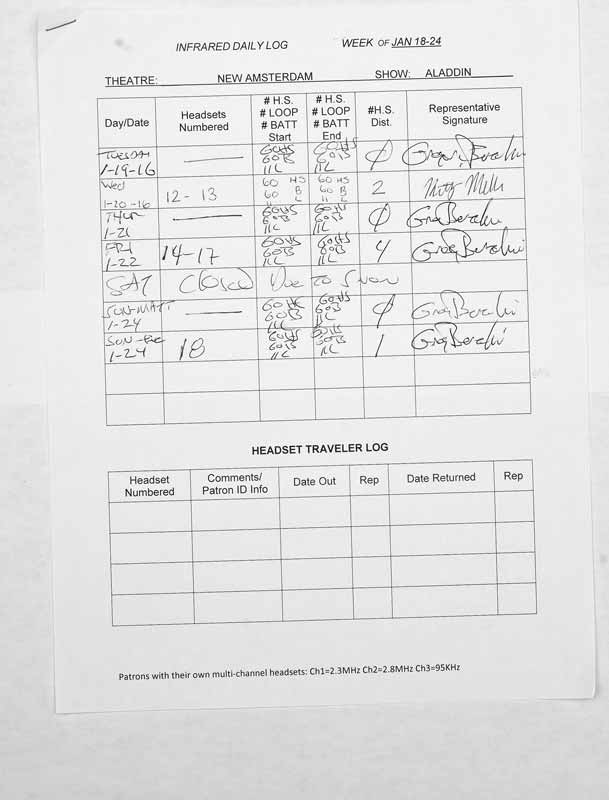 INFRARED DAILY LOG WEEK OF JAN 18-24
THEATRE: NEW AMSTERDAM SHOW: ALADDIN
Day/Date Headsets Numbered # H.S. # LOOP # BATT Start # H.S. # LOOP # BATT End #H.S. Dist. Representative Signature
TUESDAY 1-19-16 — 60HS 60B 11L 60HS 60B 11L 0
Wed 1-20-16 12-13 60 HS 60 B 11 L 60 HS 60 B 11 L 2
THUR 1-21 — 60HS 60B 11L 60HS 60B 11L 0 Greg
FRI 1-22 14-17 60HS 60B 11L 60HS 60B 11L 4 Greg
SAT Closed Due to Snow
SUN-MATT 1-24 — 60HS 60B 11L 60HS 60B 11L 0 Greg
SUN-Eve 1-24 18 60HS 60B 11L 11L 1 Greg
HEADSET TRAVELER LOG
Headset Numbered Comments/ Patron ID Info Date Out Rep Date Returned Rep
Patrons with their own multi-channel headsets: Ch1=2.3MHz Ch2=2.8MHz Ch3=95KHz